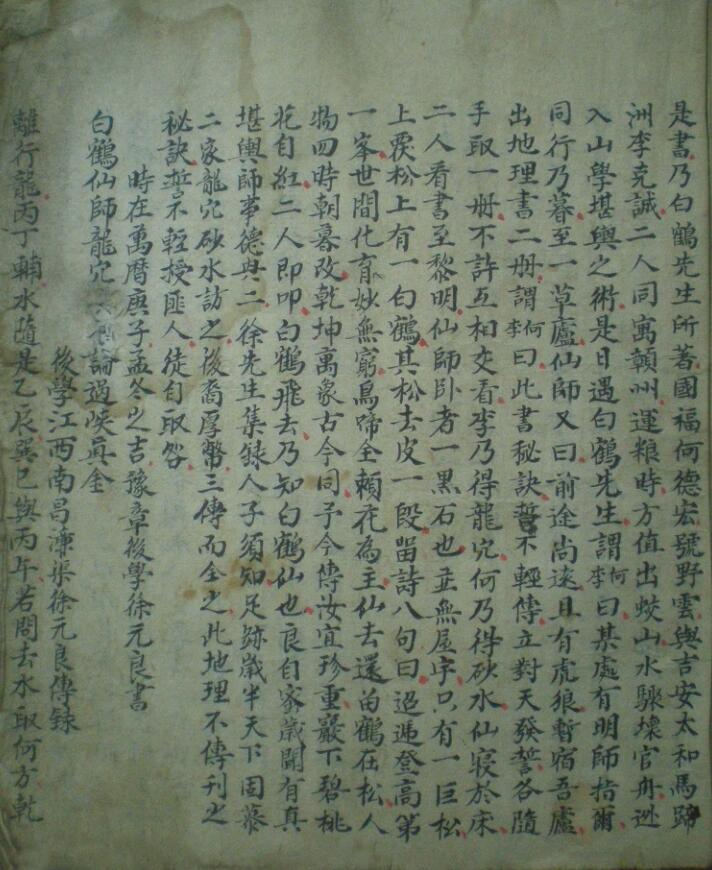 是書乃白鶴先生所著國福何德宏號野雲與吉安太和馬蹄
洲李克誠二人同寓贛州運粮時方值出蛟山水驟壞官舟逃
入山學堪輿之術是日遇白鶴先生謂何李曰某處有明師指爾
同行乃暮至一草廬仙師又曰前途尚遠且有虎狼暫宿吾廬
出地理書二册謂何李曰此書秘訣誓不輕傳立對天發誓各隨
手取一册不許互相交看李乃得龍穴何乃得砂水仙寢於床
二人看書至黎明仙師卧者一黑石也並無屋宇只有一巨松
上覆松上有一白鶴其松去皮一段留詩八句曰迢遞登高第
一峯世間化育妙無窮鳥蹄全賴花為主仙去還留鶴在松人
物四時朝暮改乾坤萬象古今同予今傳汝宜珍重巖下碧桃
花自紅二人即叩白鶴飛去乃知白鶴仙也良自家嵗閒有真
堪輿師事德與二徐先生集録人子須知足跡嵗半天下因慕
二家龍穴砂水訪之後裔厚幣三傳而全之此地理不傳刊之
秘訣誓不輕授匪人徒自取咎
時在萬曆庚子孟冬之吉豫章後學徐元良書
白鶴仙師龍穴論過峽真全
後學江西南昌溓渠徐元良傳録
離行龍丙丁輔水隨是乙辰巽巳與丙午若問去水取何方乾